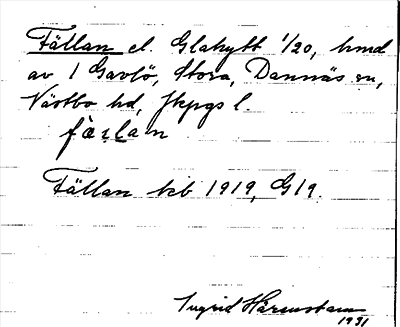 Fällan el. Glahytt 1/20, hmd
av 1 Gavlö, Stora, Dannäs sn,
Västbo hd, Jkpgs l.
fæ̀l̀an
Fällan kb 1919, G19.
Ingrid Härenstam
1931